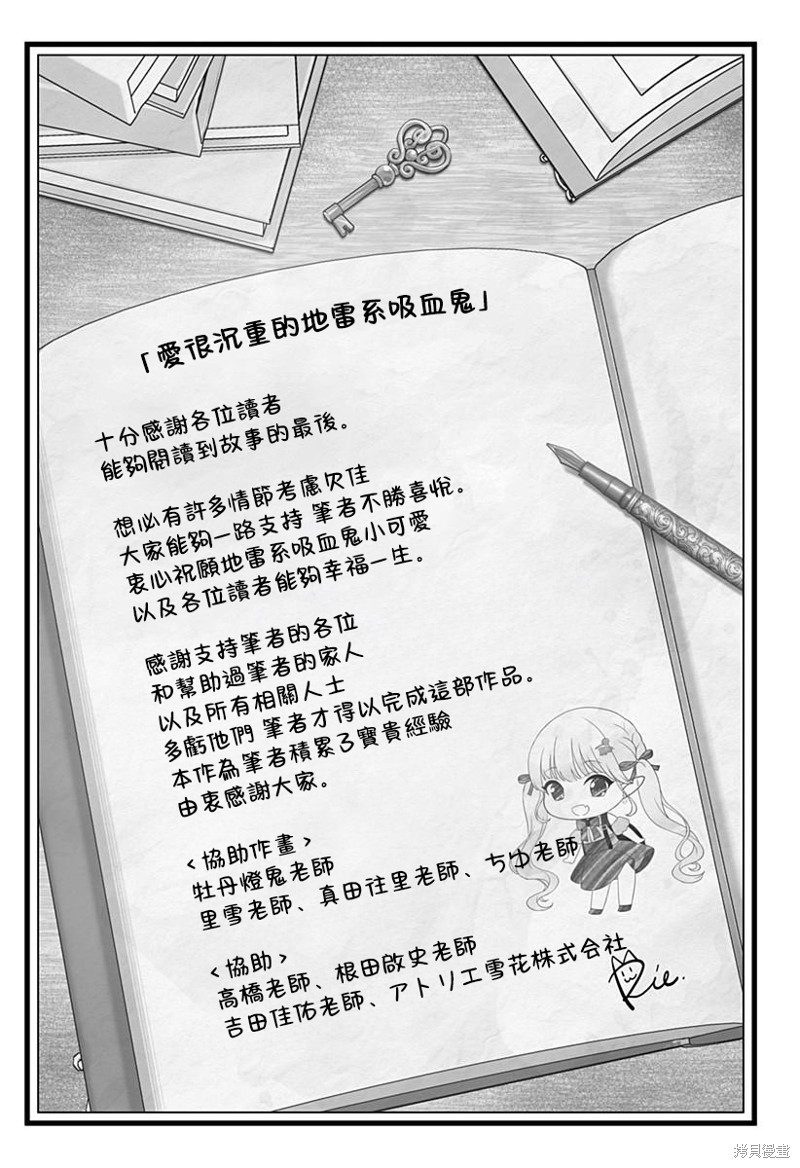 「愛很沉重的地雷系吸血鬼」
十分感謝各位讀者
能夠閱讀到故事的最後。
想必有許多情節考慮欠佳
大家能夠一路支持 筆者不勝喜悅。
衷心祝願地雷系吸血鬼小可愛
以及各位讀者能夠幸福一生。
感謝支持筆者的各位
和幫助過筆者的家人
以及所有相關人士
多虧他們 筆者才得以完成這部作品。
本作為筆者積累了寶貴經驗
由衷感謝大家。
<協助作畫>
牡丹燈鬼老師
里雪老師、真田往里老師、ちゆ老師
<協助>
高橋老師、根田啟史老師
吉田佳佑老師、アトリエ雪花株式会社
Rie.
拷貝漫畫